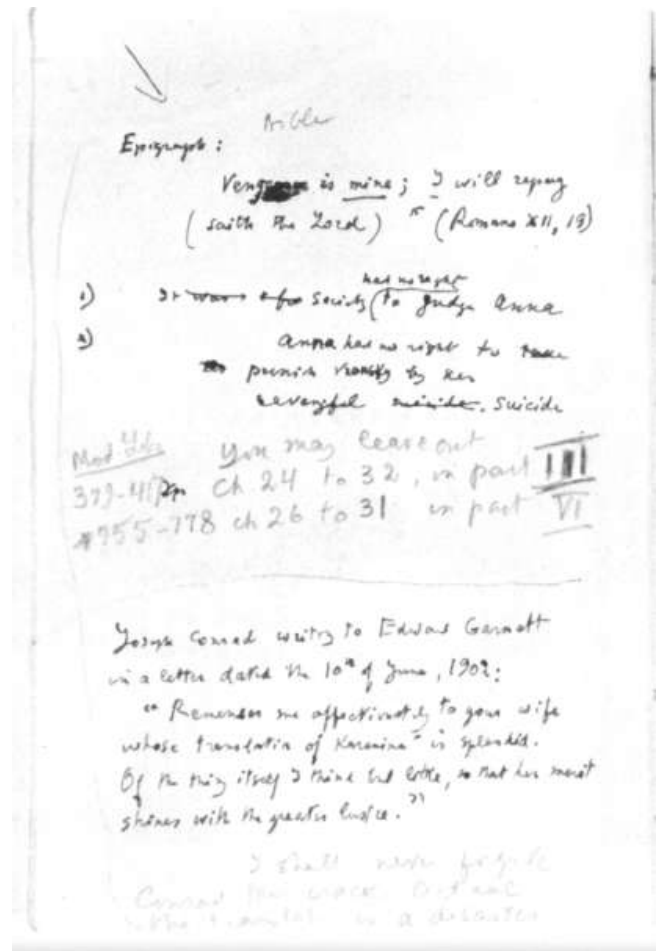 Bible
Epigraph:
Vengeance is mine; I will repay
(saith the Lord) " (Romans XII, 19)
has no right
1) It was for Society (to judge Anna
2) Anna has no right to
punish Vronsky by her
revengeful suicide. suicide
Mod. Lib. You may leave out
379-417 pp ch 24 to 32, in part III
755-778 ch 26 to 31 in part VI
Joseph Conrad writing to Edward Garnett
in a letter dated the 10th of June, 1902:
"Remember me affectionately to your wife
whose translation of Karenina" is splendid.
Of the thing itself I think but little, so that her merit
shines with the greater lustre."
I shall never forgive
Conrad this crack. Actual
the translation is a disaster